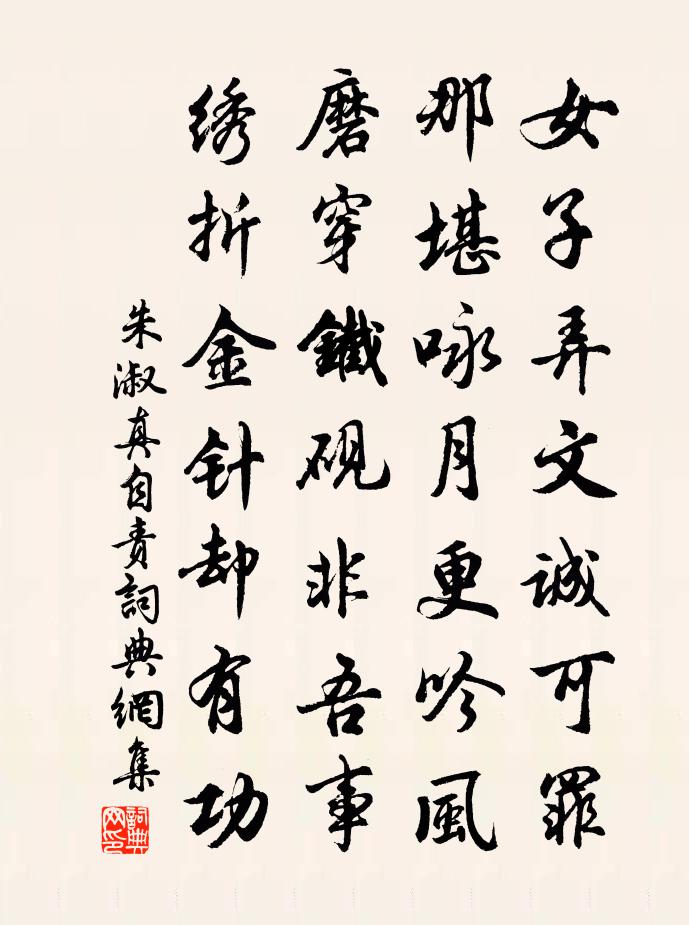 女子弄文诚可罪
那堪咏月更吟風
磨穿鐵砚非吾事
绣折金针却有功
朱淑真自责詞典網集
詞典网印